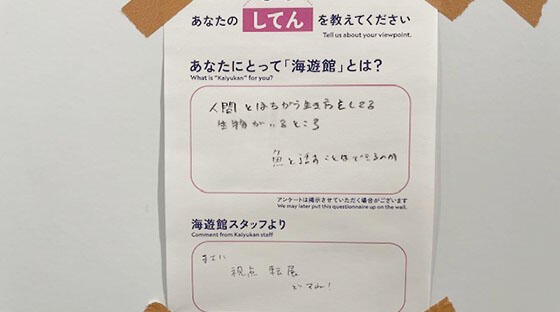 あなたの してん を教えてください
Tell us about your viewpoint.
あなたにとって「海遊館」とは？
What is "Kaiyukan" for you?
人間とはちがう生き方をしてる
生物がいるところ
魚と話すことはできるのか
アンケートは掲示させていただく場合がございます
We may later put this questionnaire up on the wall.
海遊館スタッフより
Comment from Kaiyukan staff
まさに
視点 転展
ですね！